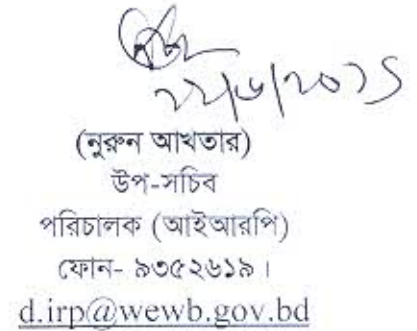 ২২/৬/২০২১
(নুরুন আখতার)
উপ-সচিব
পরিচালক (আইআরপি)
ফোন- ৯৩৫২৬১৯।
d.irp@wewb.gov.bd